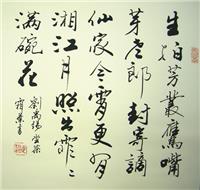 生拍芳叢鷹嘴
芽老郎封寄謫
仙家今宵更有
湘江月照出霏霏
滿碗花
劉禹錫嘗茶
書